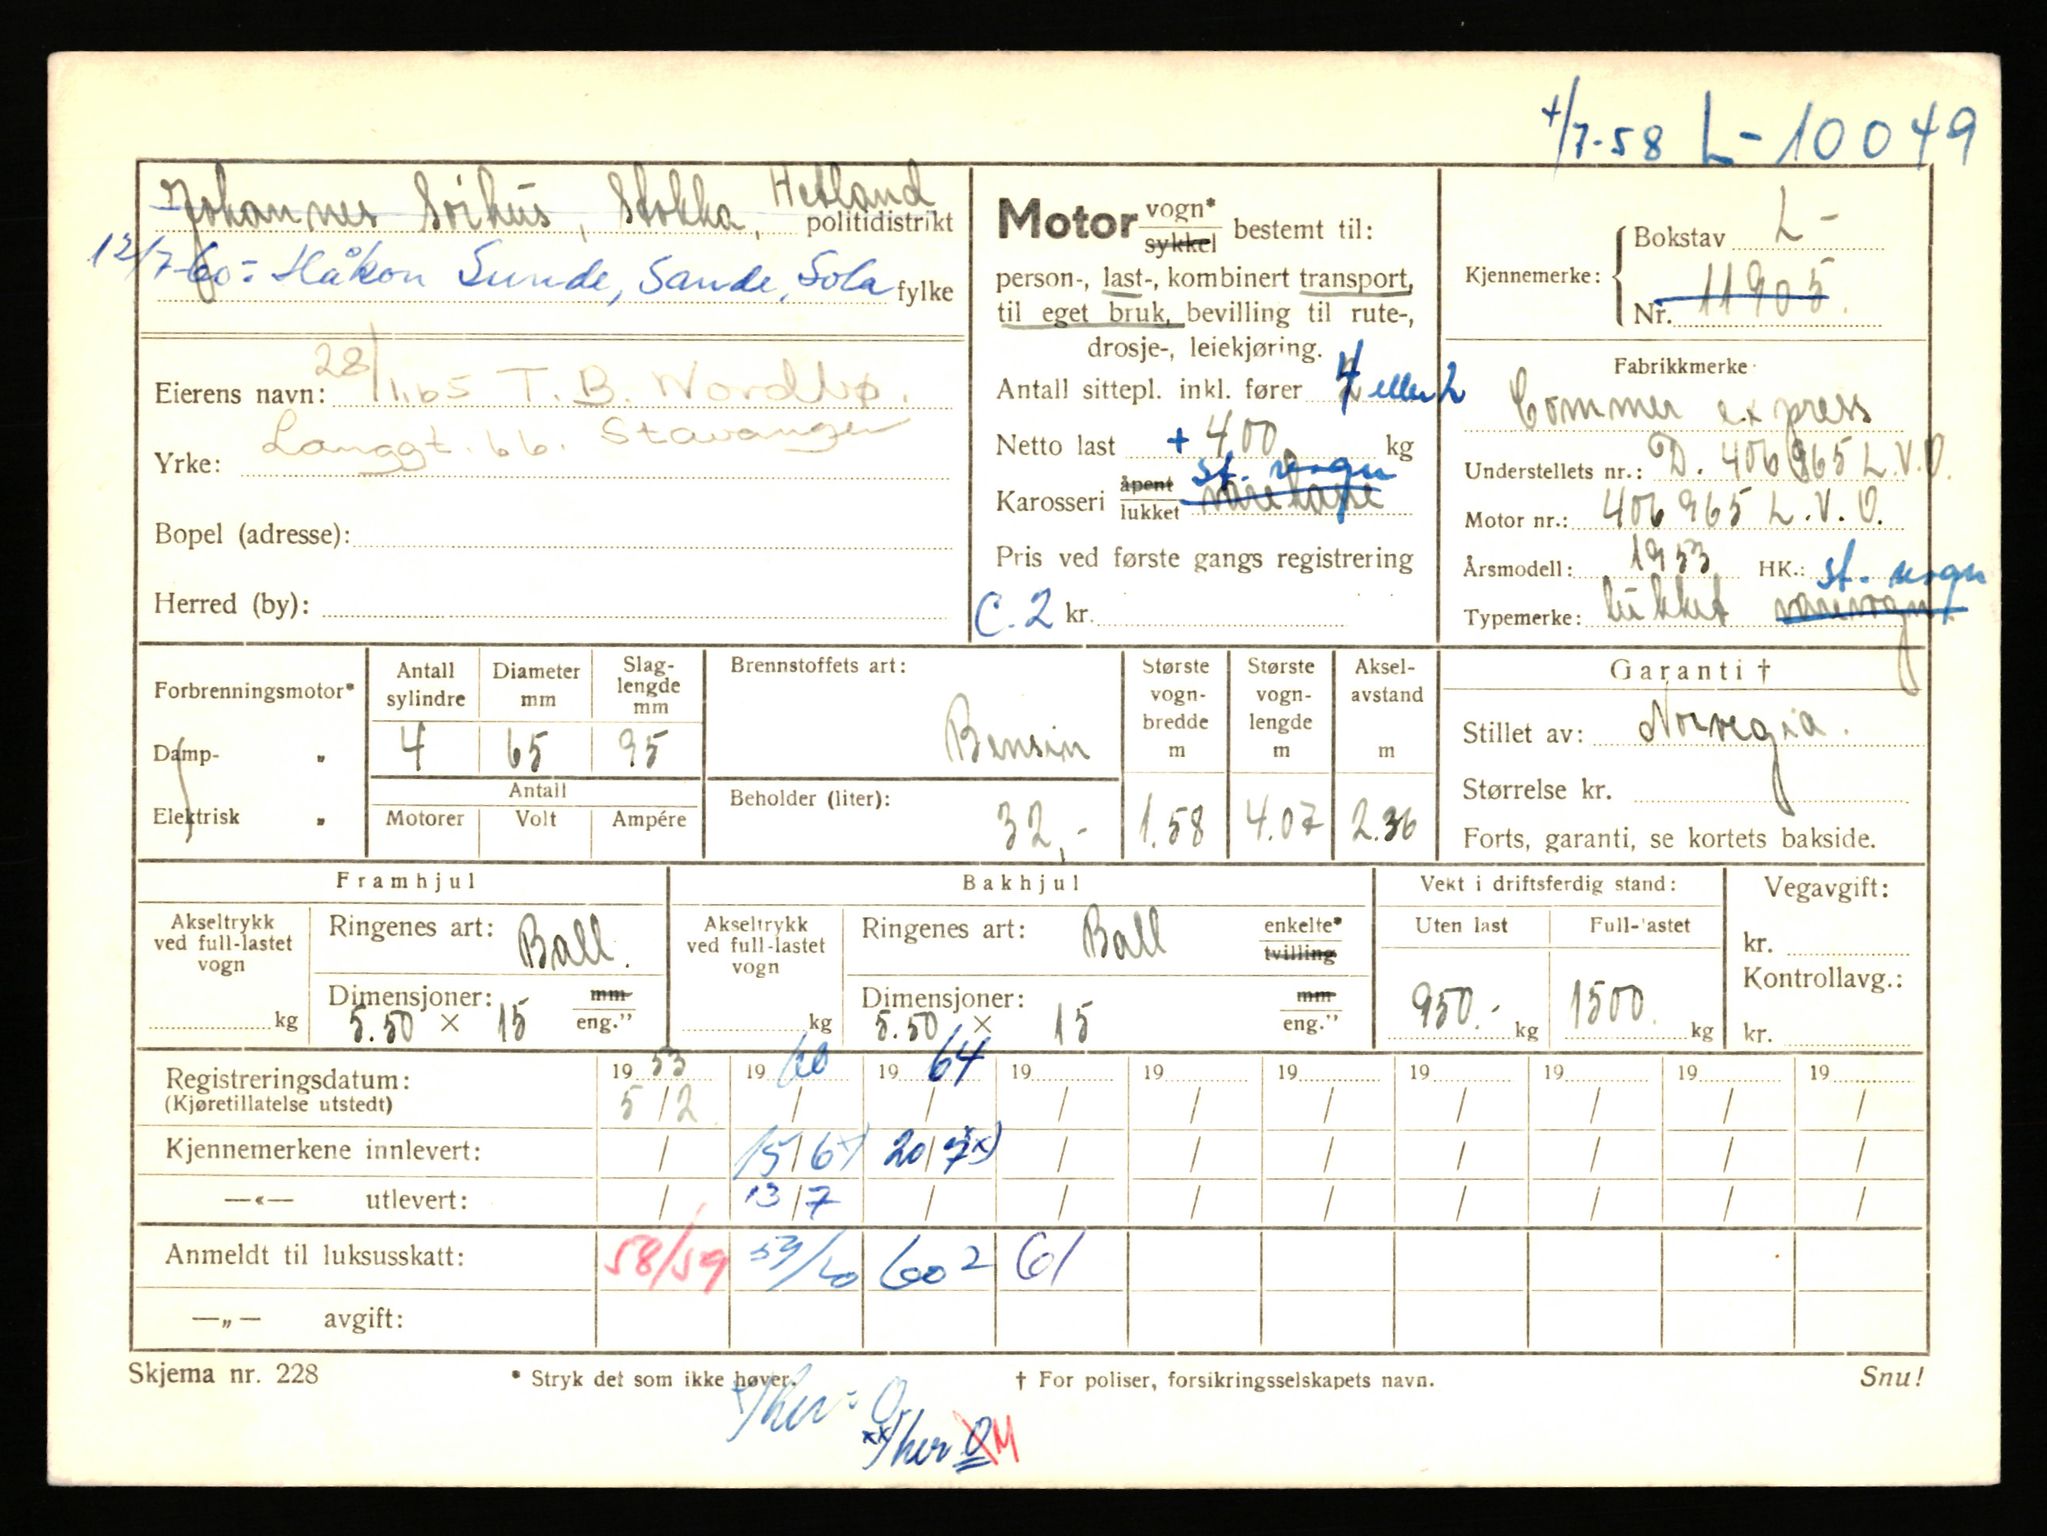 +/7-58 L-10049
Johannes Soihus, Stokka, Hetland politidistrikt
13/7-60: Håkon Sunde, Sande, Sola fylke
28/1.65 T. B. Nordbø.
Eierens navn:
Langgt. 66. Stavanger
Yrke:
Bopel (adresse):
Herred (by):
Motor vogn* sykkel bestemt til:
person-, last-, kombinert transport,
til eget bruk, bevilling til rute-,
drosje-, leiekjøring.
Antall sittepl. inkl. fører 4 eller 2
Netto last + 400 kg
st. vogn
Karosseri åpent lukket varekasse
Pris ved første gangs registrering
C.2 kr.
Kjennemerke: Bokstav L-
Nr. 11905.
Fabrikkmerke
Commer express
Understellets nr.: D. 406965 L.V.O.
Motor nr.: 406965 L.V.O.
Årsmodell: 1953 HK.: st. vogn
Typemerke: lukket varevogn
Forbrenningsmotor*
Damp- "
Elektrisk "
Antall sylindre Diameter mm Slag-lengde mm
4 65 95
Antall
Motorer Volt Ampére
Brennstoffets art:
Bensin
Beholder (liter):
32,-
Største vogn-bredde m Største vogn-lengde m Aksel-avstand m
1.58 4.07 2.36
Garanti †
Stillet av: Norvegia.
Størrelse kr.
Forts, garanti, se kortets bakside.
Framhjul
Akseltrykk ved full-lastet vogn
kg
Ringenes art: Ball.
Dimensjoner: mm eng."
5.50 × 15
Bakhjul
Akseltrykk ved full-lastet vogn
kg
Ringenes art: Ball enkelte* tvilling
Dimensjoner: mm eng."
5.50 × 15
Vekt i driftsferdig stand:
Uten last Full-lastet
950.- kg 1500 kg
Vegavgift:
kr.
Kontrollavg.:
kr.
Registreringsdatum: 1953 1960 1964 19 19 19 19 19 19 19
(Kjøretillatelse utstedt) 5/2 / / / / / / / / /
Kjennemerkene innlevert: / 15/6 x) 20/7 xx) / / / / / / /
—«— utlevert: / 13/7 / / / / / / / /
Anmeldt til luksusskatt: 58/59 59/60 60 2 61
—„— avgift:
Skjema nr. 228
* Stryk det som ikke høver.
† For poliser, forsikringsselskapets navn.
Snu!
x/her: O.
xx/her O M